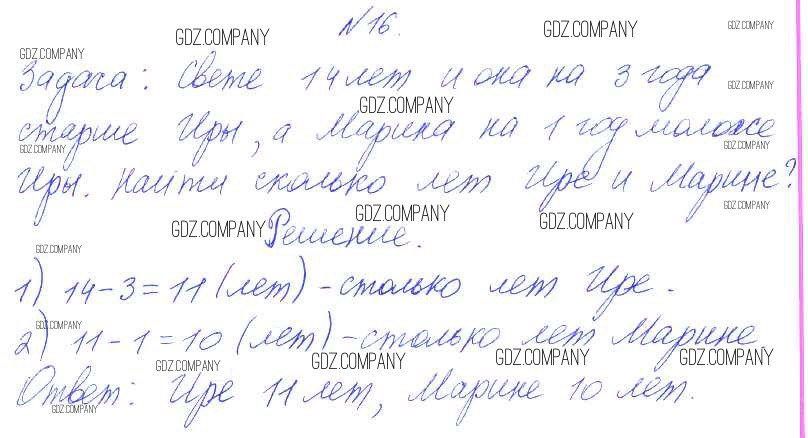 №16.
GDZ.COMPANY GDZ.COMPANY GDZ.COMPANY
GDZ.COMPANY
Задача: Свете 14 лет и она на 3 года
GDZ.COMPANY GDZ.COMPANY
старше Иры, а Марина на 1 год моложе
GDZ.COMPANY GDZ.COMPANY
Иры. Найти сколько лет Ире и Марине?
GDZ.COMPANY GDZ.COMPANY GDZ.COMPANY GDZ.COMPANY
Решение.
GDZ.COMPANY
1) 14-3=11 (лет) - столько лет Ире.
GDZ.COMPANY
2) 11-1=10 (лет) - столько лет Марине
GDZ.COMPANY GDZ.COMPANY GDZ.COMPANY GDZ.COMPANY
Ответ: Ире 11 лет, Марине 10 лет.
GDZ.COMPANY